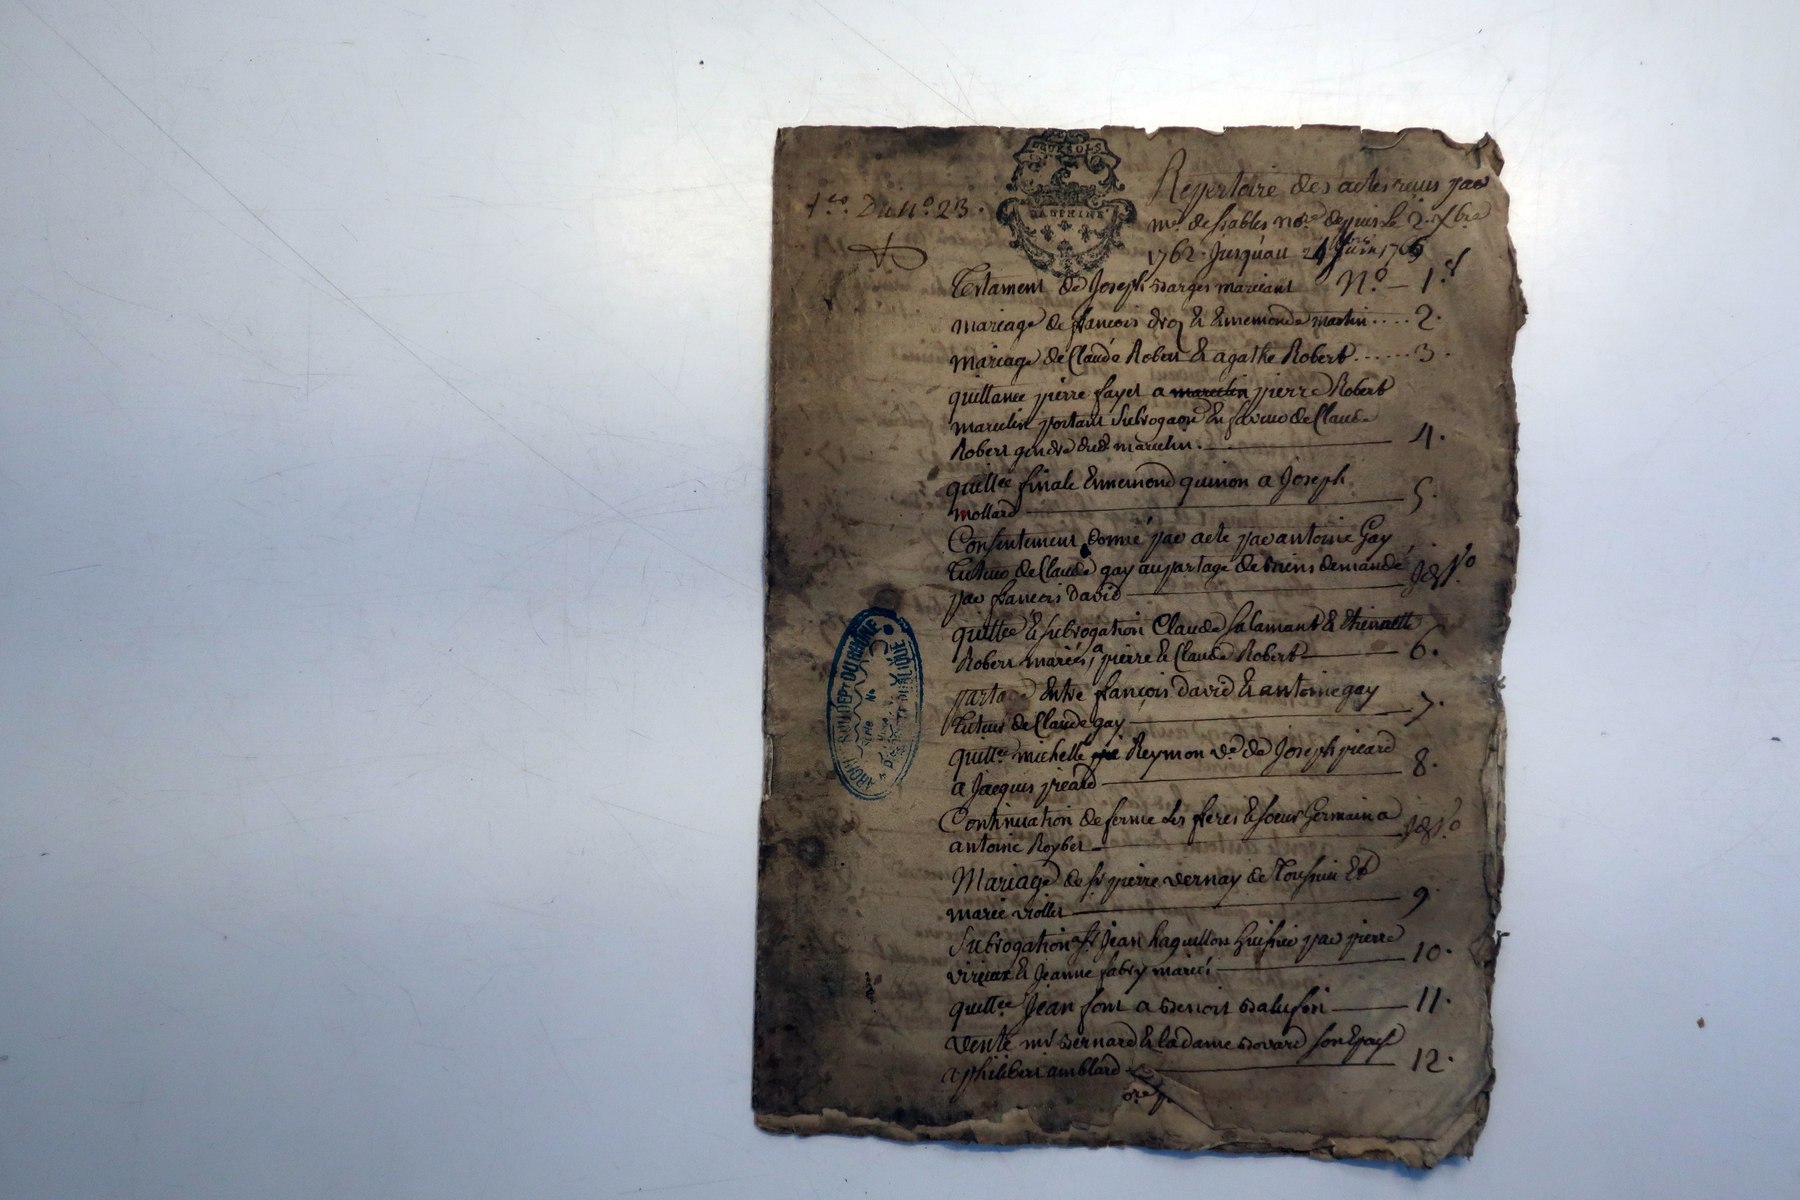 DEUX SOLS
DAUPHINÉ
1.re Du n.º 23.
Reppertoire des actes reçus par
m.e de sables no.re depuis le 2. xbre
1762. Jusqu'au 1765
Testament de Joseph Barges N.º — 1.er
mariage de françois droz & Ennemonde martin .... 2.
mariage de Claude Robert & agathe Robert ...... 3.
quittance pierre fayet a marcelin pierre Robert
marcelin portant subrogaon En faveur de Claude
Robert gendre dud marcelin. — 4.
quittce finale Ennemond quinon a Joseph
mollard — 5.
Consentement donné par acte par antoine Gay
tuteur de Claude gay au partage de biens demandé
par françois david —
quittce & subrogation Claude salamant & Etiennette
Robert mariés, a pierre & Claude Robert — 6.
partage Entre françois david & antoine gay
tuteur de Claude gay — 7.
quittce michelle Reymon ve. de Joseph picard
a Jacques picard — 8.
Continuation de ferme les freres & soeur Germain a
antoine Roybet —
Mariage de sr pierre vernay de Et
marie viollet — 9.
Subrogation Sr Jean haguillon huissier par pierre
virieux & Jeanne fabry mariés — 10.
quittce Jean font a Benoit — 11.
vente mr Bernard & la dame Bovard son Epouse
a philibert amblard — 12.
ARCHIV. DU DEPT DU RHÔNE
Série
No